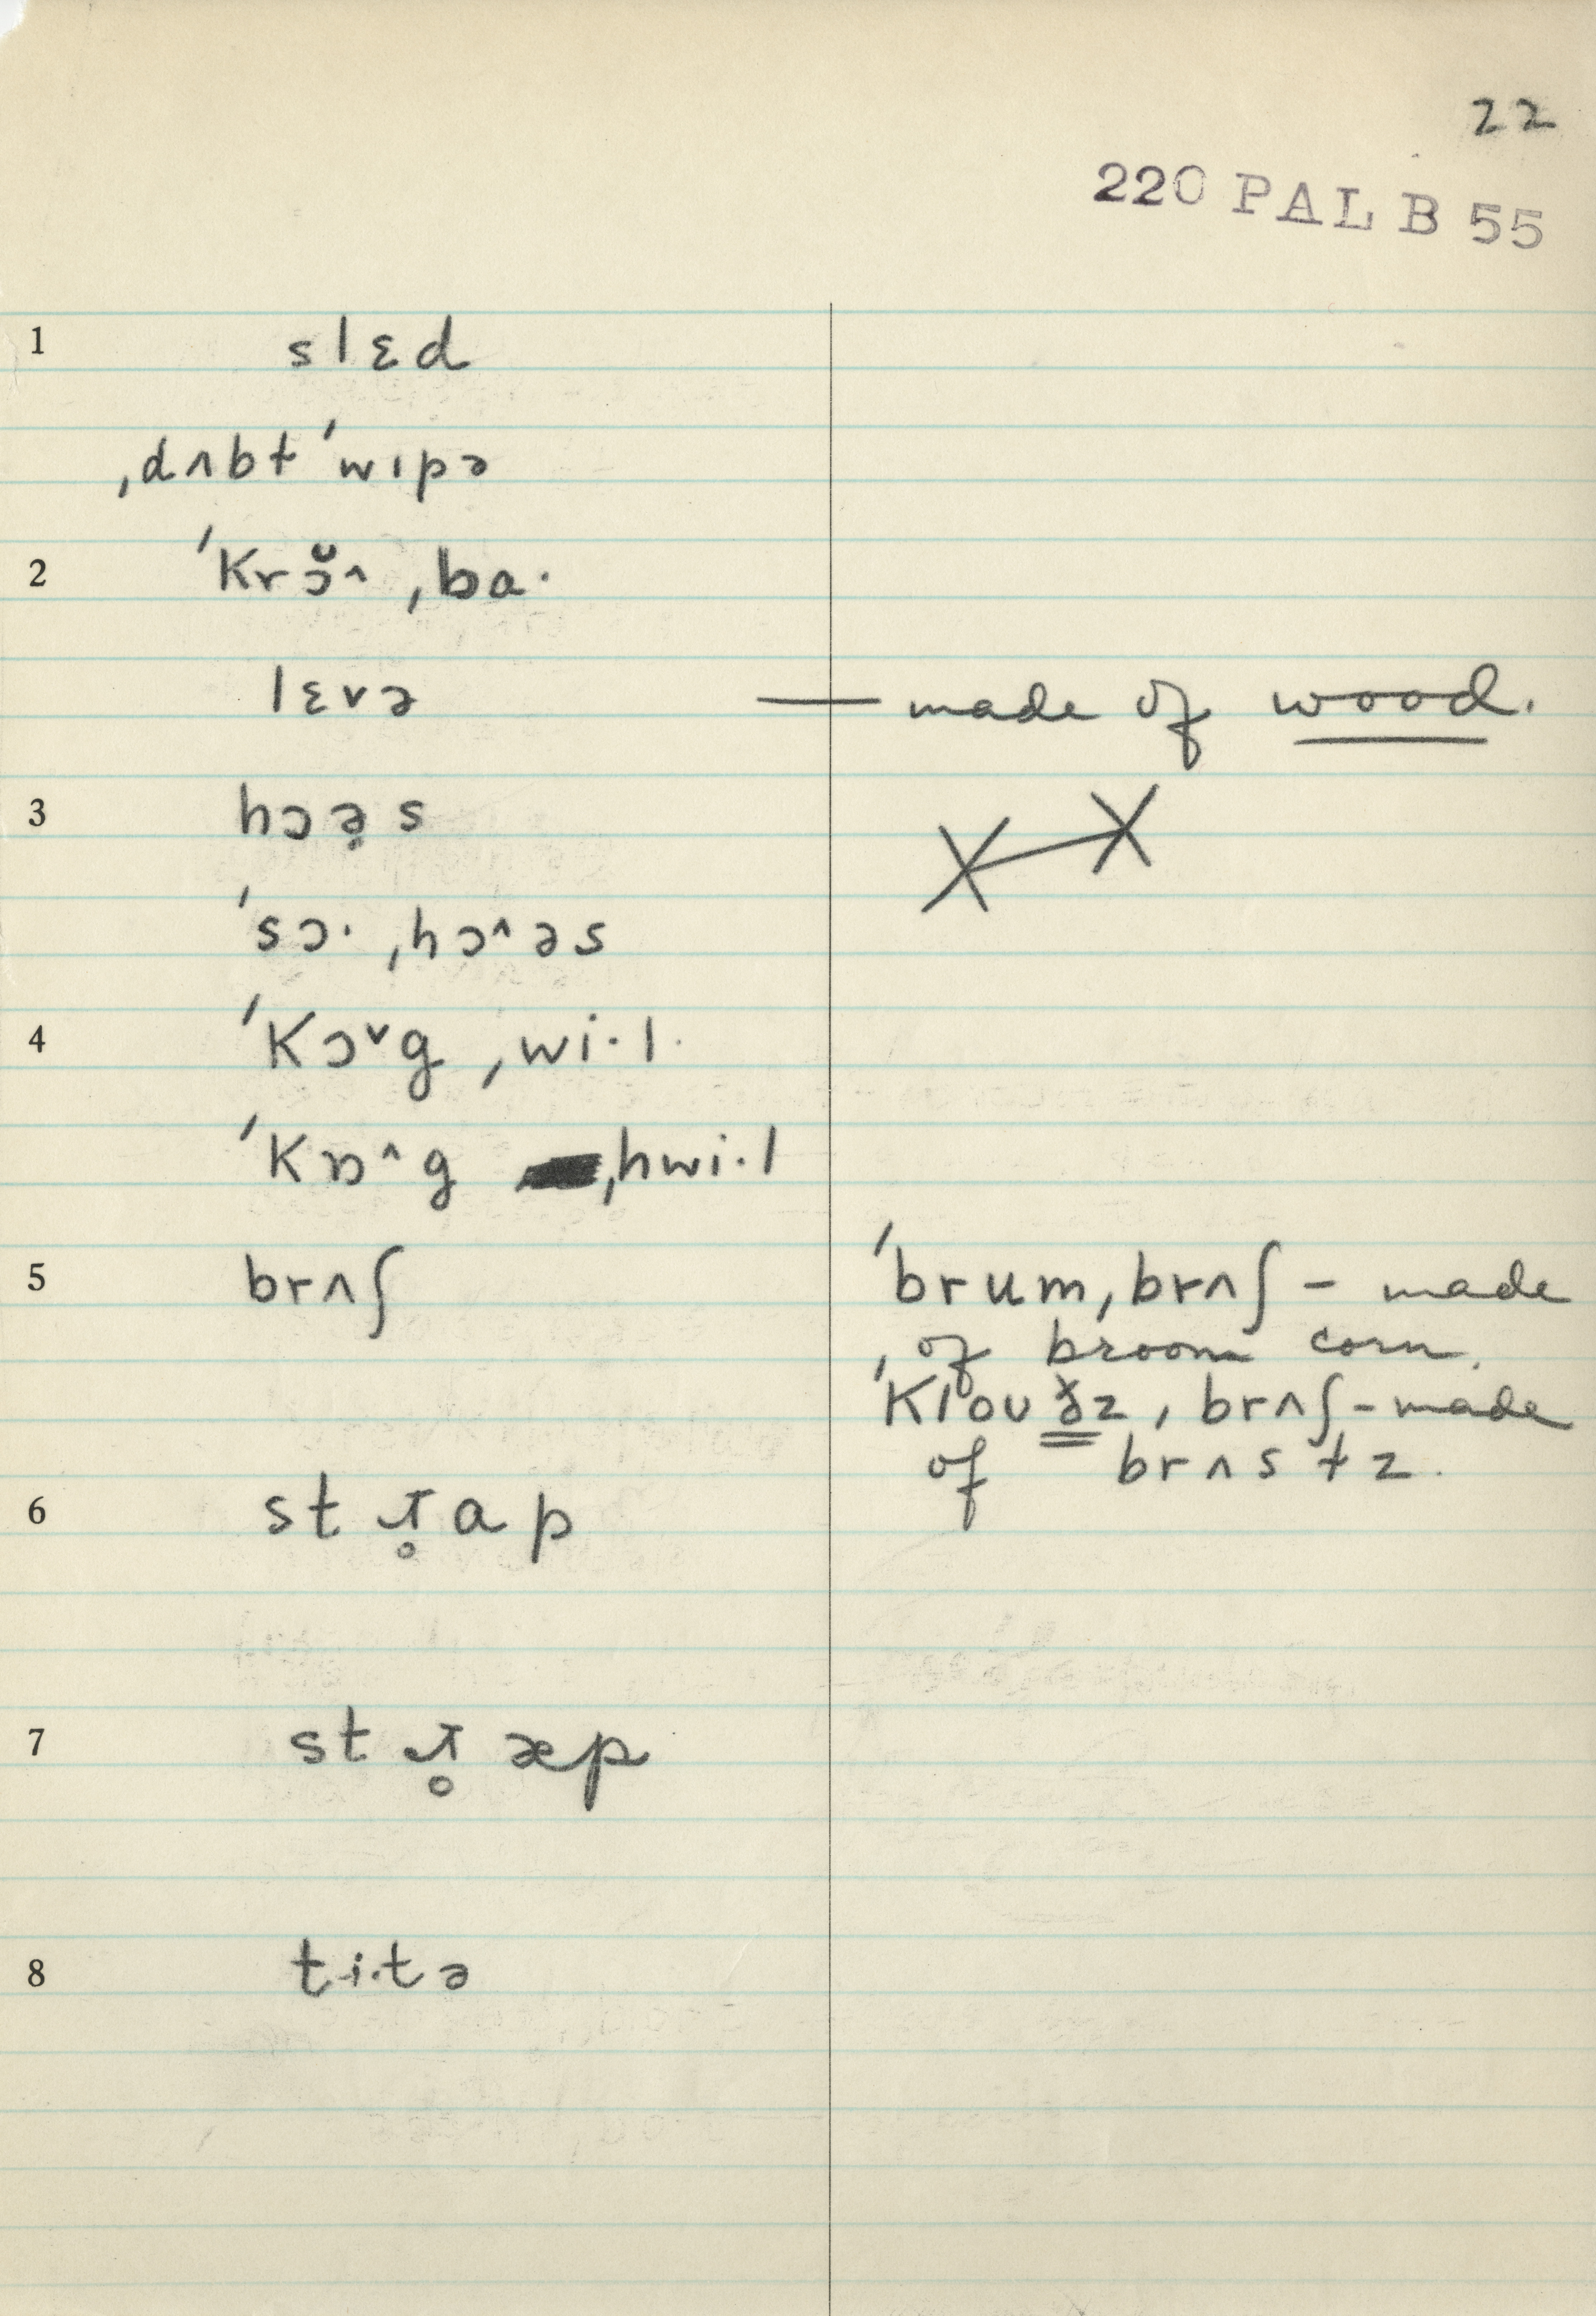 22
220 PAL B 55
1 slɛd
ˌdʌbt ˈwɪpə
2 ˈkrɔ̆^ ˌba·
lɛvə — made of wood.
3 hɔə̣s
ˈsɔ· ˌhɔ^əs
4 ˈkɔˇg ˌwi·l
ˈkɒ^g ˌhwi·l
5 brʌʃ
ˈbrum ˌbrʌʃ – made
of broom corn.
ˌbrʌʃ – made
of brʌstz.
6 stɹ̥ap
7 stɹ̥æp
8 ti·tə